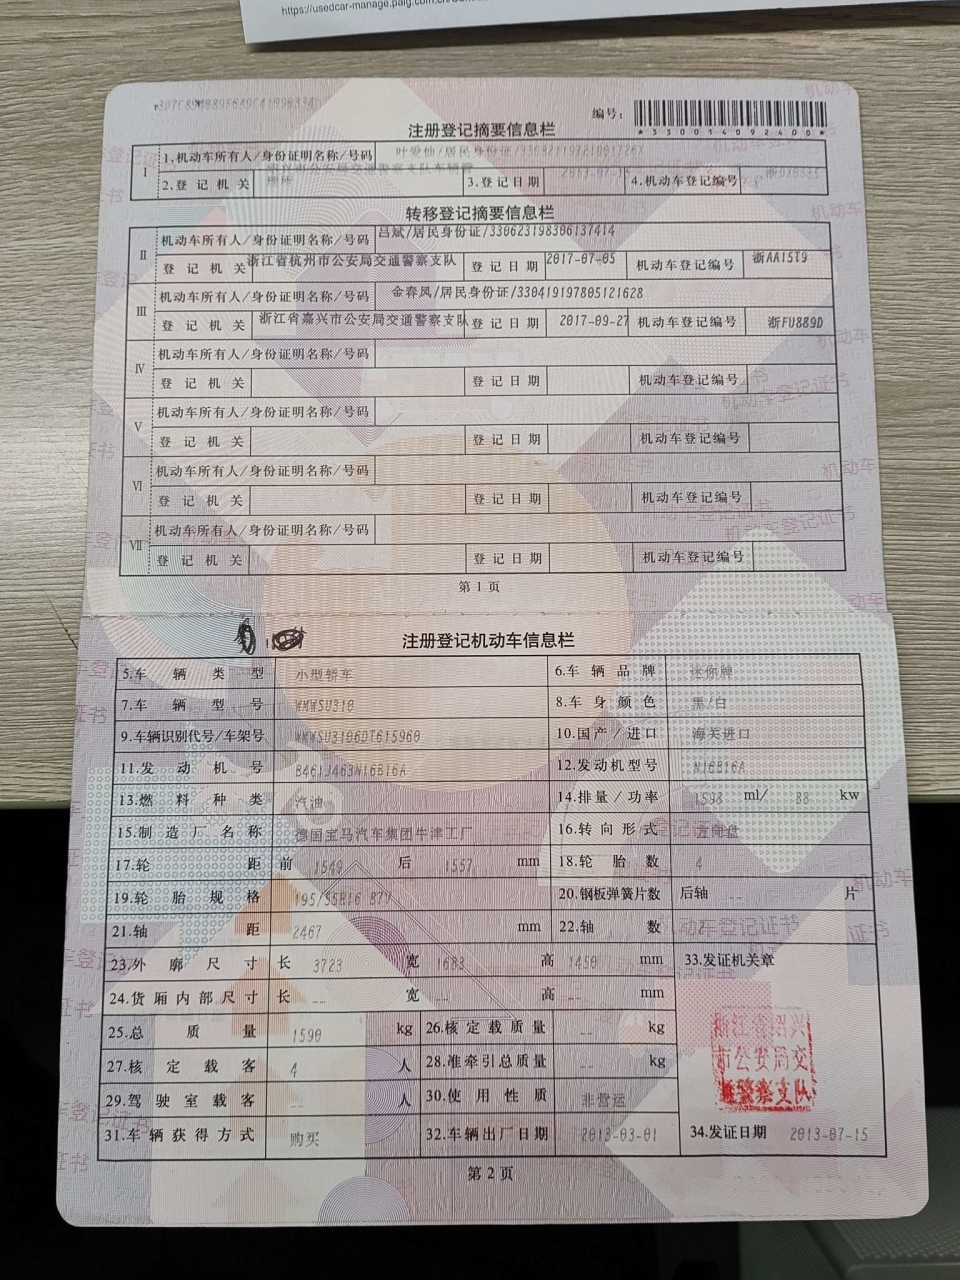 https://usedcar-manage.paig.com.cn/
编号:
*330014092400*
注册登记摘要信息栏
I
1.机动车所有人/身份证明名称/号码 叶爱仙/居民身份证/
2.登记机关 绍兴市公安局交通警察支队车辆管理所 3.登记日期 2013-07-15 4.机动车登记编号
转移登记摘要信息栏
II 机动车所有人/身份证明名称/号码 吕斌/居民身份证/330623198306137414
登记机关 浙江省杭州市公安局交通警察支队 登记日期 2017-07-05 机动车登记编号 浙AA15T9
III 机动车所有人/身份证明名称/号码 金春凤/居民身份证/330419197805121628
登记机关 浙江省嘉兴市公安局交通警察支队 登记日期 2017-09-27 机动车登记编号 浙FU889D
IV 机动车所有人/身份证明名称/号码
登记机关 登记日期 机动车登记编号
V 机动车所有人/身份证明名称/号码
登记机关 登记日期 机动车登记编号
VI 机动车所有人/身份证明名称/号码
登记机关 登记日期 机动车登记编号
VII 机动车所有人/身份证明名称/号码
登记机关 登记日期 机动车登记编号
第1页
注册登记机动车信息栏
5.车辆类型 小型轿车 6.车辆品牌 迷你牌
7.车辆型号 WMWSU310 8.车身颜色 黑/白
9.车辆识别代号/车架号 WMWSU3106DT615960 10.国产/进口 海关进口
11.发动机号 B461J463N16B16A 12.发动机型号 N16B16A
13.燃料种类 汽油 14.排量/功率 1598 ml/ 88 kw
15.制造厂名称 德国宝马汽车集团牛津工厂 16.转向形式 方向盘
17.轮距 前 1549 后 1557 mm 18.轮胎数 4
19.轮胎规格 195/55R16 87V 20.钢板弹簧片数 后轴 -- 片
21.轴距 2467 mm 22.轴数 2
23.外廓尺寸 长 3723 宽 1683 高 1450 mm 33.发证机关章
24.货厢内部尺寸 长 -- 宽 -- 高 -- mm
25.总质量 1590 kg 26.核定载质量 -- kg
浙江省绍兴
市公安局交
通警察支队
27.核定载客 4 人 28.准牵引总质量 -- kg
29.驾驶室载客 -- 人 30.使用性质 非营运
31.车辆获得方式 购买 32.车辆出厂日期 2013-03-01 34.发证日期 2013-07-15
第2页